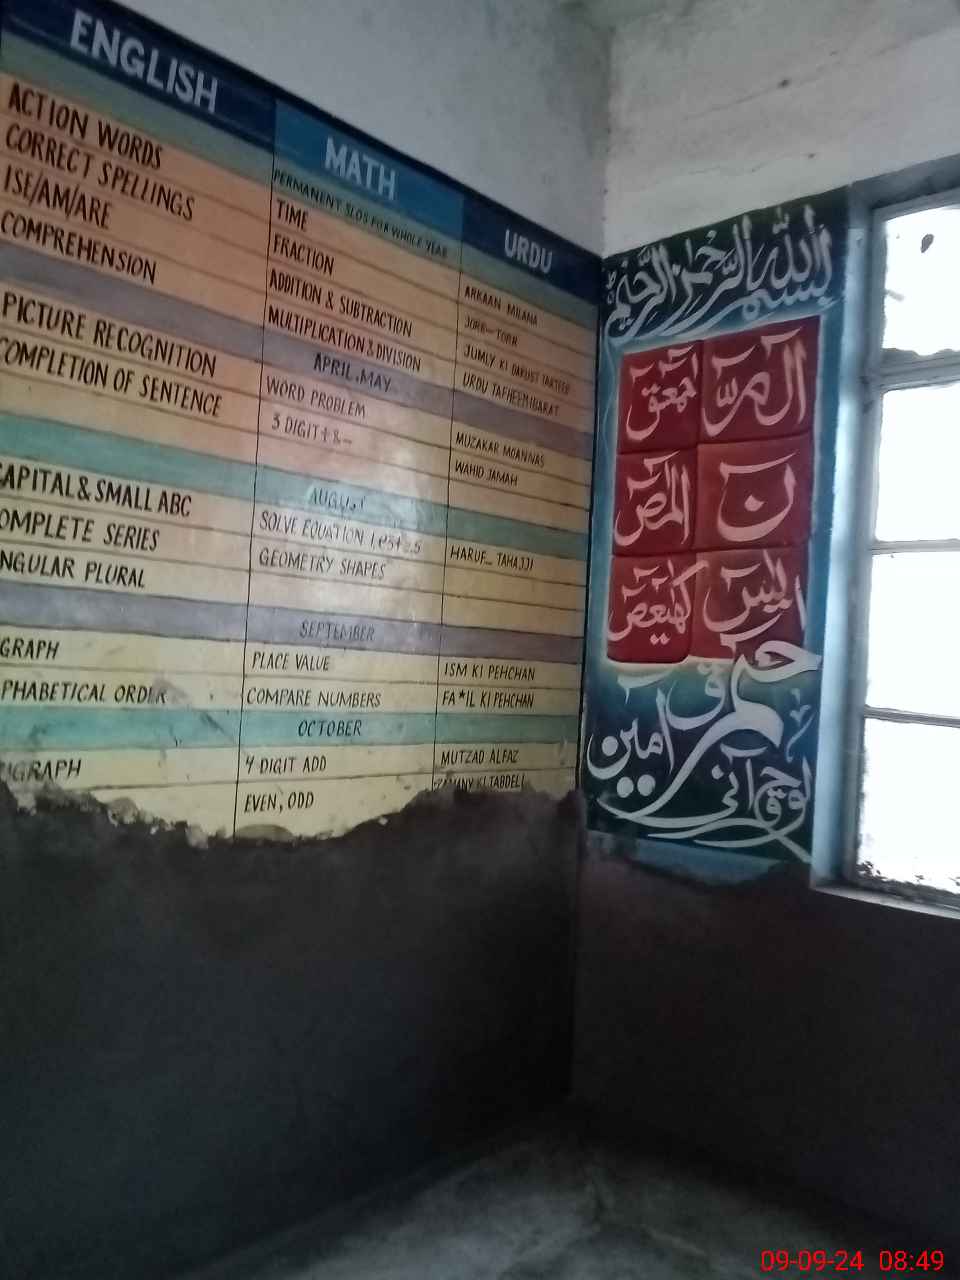 ENGLISH
ACTION WORDS
CORRECT SPELLINGS
ISE/AM/ARE
COMPREHENSION
PICTURE RECOGNITION
COMPLETION OF SENTENCE
CAPITAL & SMALL ABC
OMPLETE SERIES
NGULAR PLURAL
GRAPH
PHABETICAL ORDER
GRAPH
MATH
PERMANENT SLOS FOR WHOLE YEAR
TIME
FRACTION
ADDITION & SUBTRACTION
MULTIPLICATION & DIVISION
APRIL, MAY
WORD PROBLEM
3 DIGIT + & -
AUGUST
SOLVE EQUATION
GEOMETRY SHAPES
SEPTEMBER
PLACE VALUE
COMPARE NUMBERS
OCTOBER
4 DIGIT ADD
EVEN, ODD
URDU
ARKAAN MILANA
JORR-TORR
JUMLY KI DARUST TARTEEB
URDU TAFHEEM IBARAT
MUZAKAR MOANNAS
WAHID JAMAH
HARUF_ TAHAJJI
ISM KI PEHCHAN
FA*IL KI PEHCHAN
MUTZAD ALFAZ
KI TABDELI
بسم الله الرحمن الرحيم
المر
المص ن
كهيعص يس
ق
امين
لوح قرآنی
09-09-24 08:49